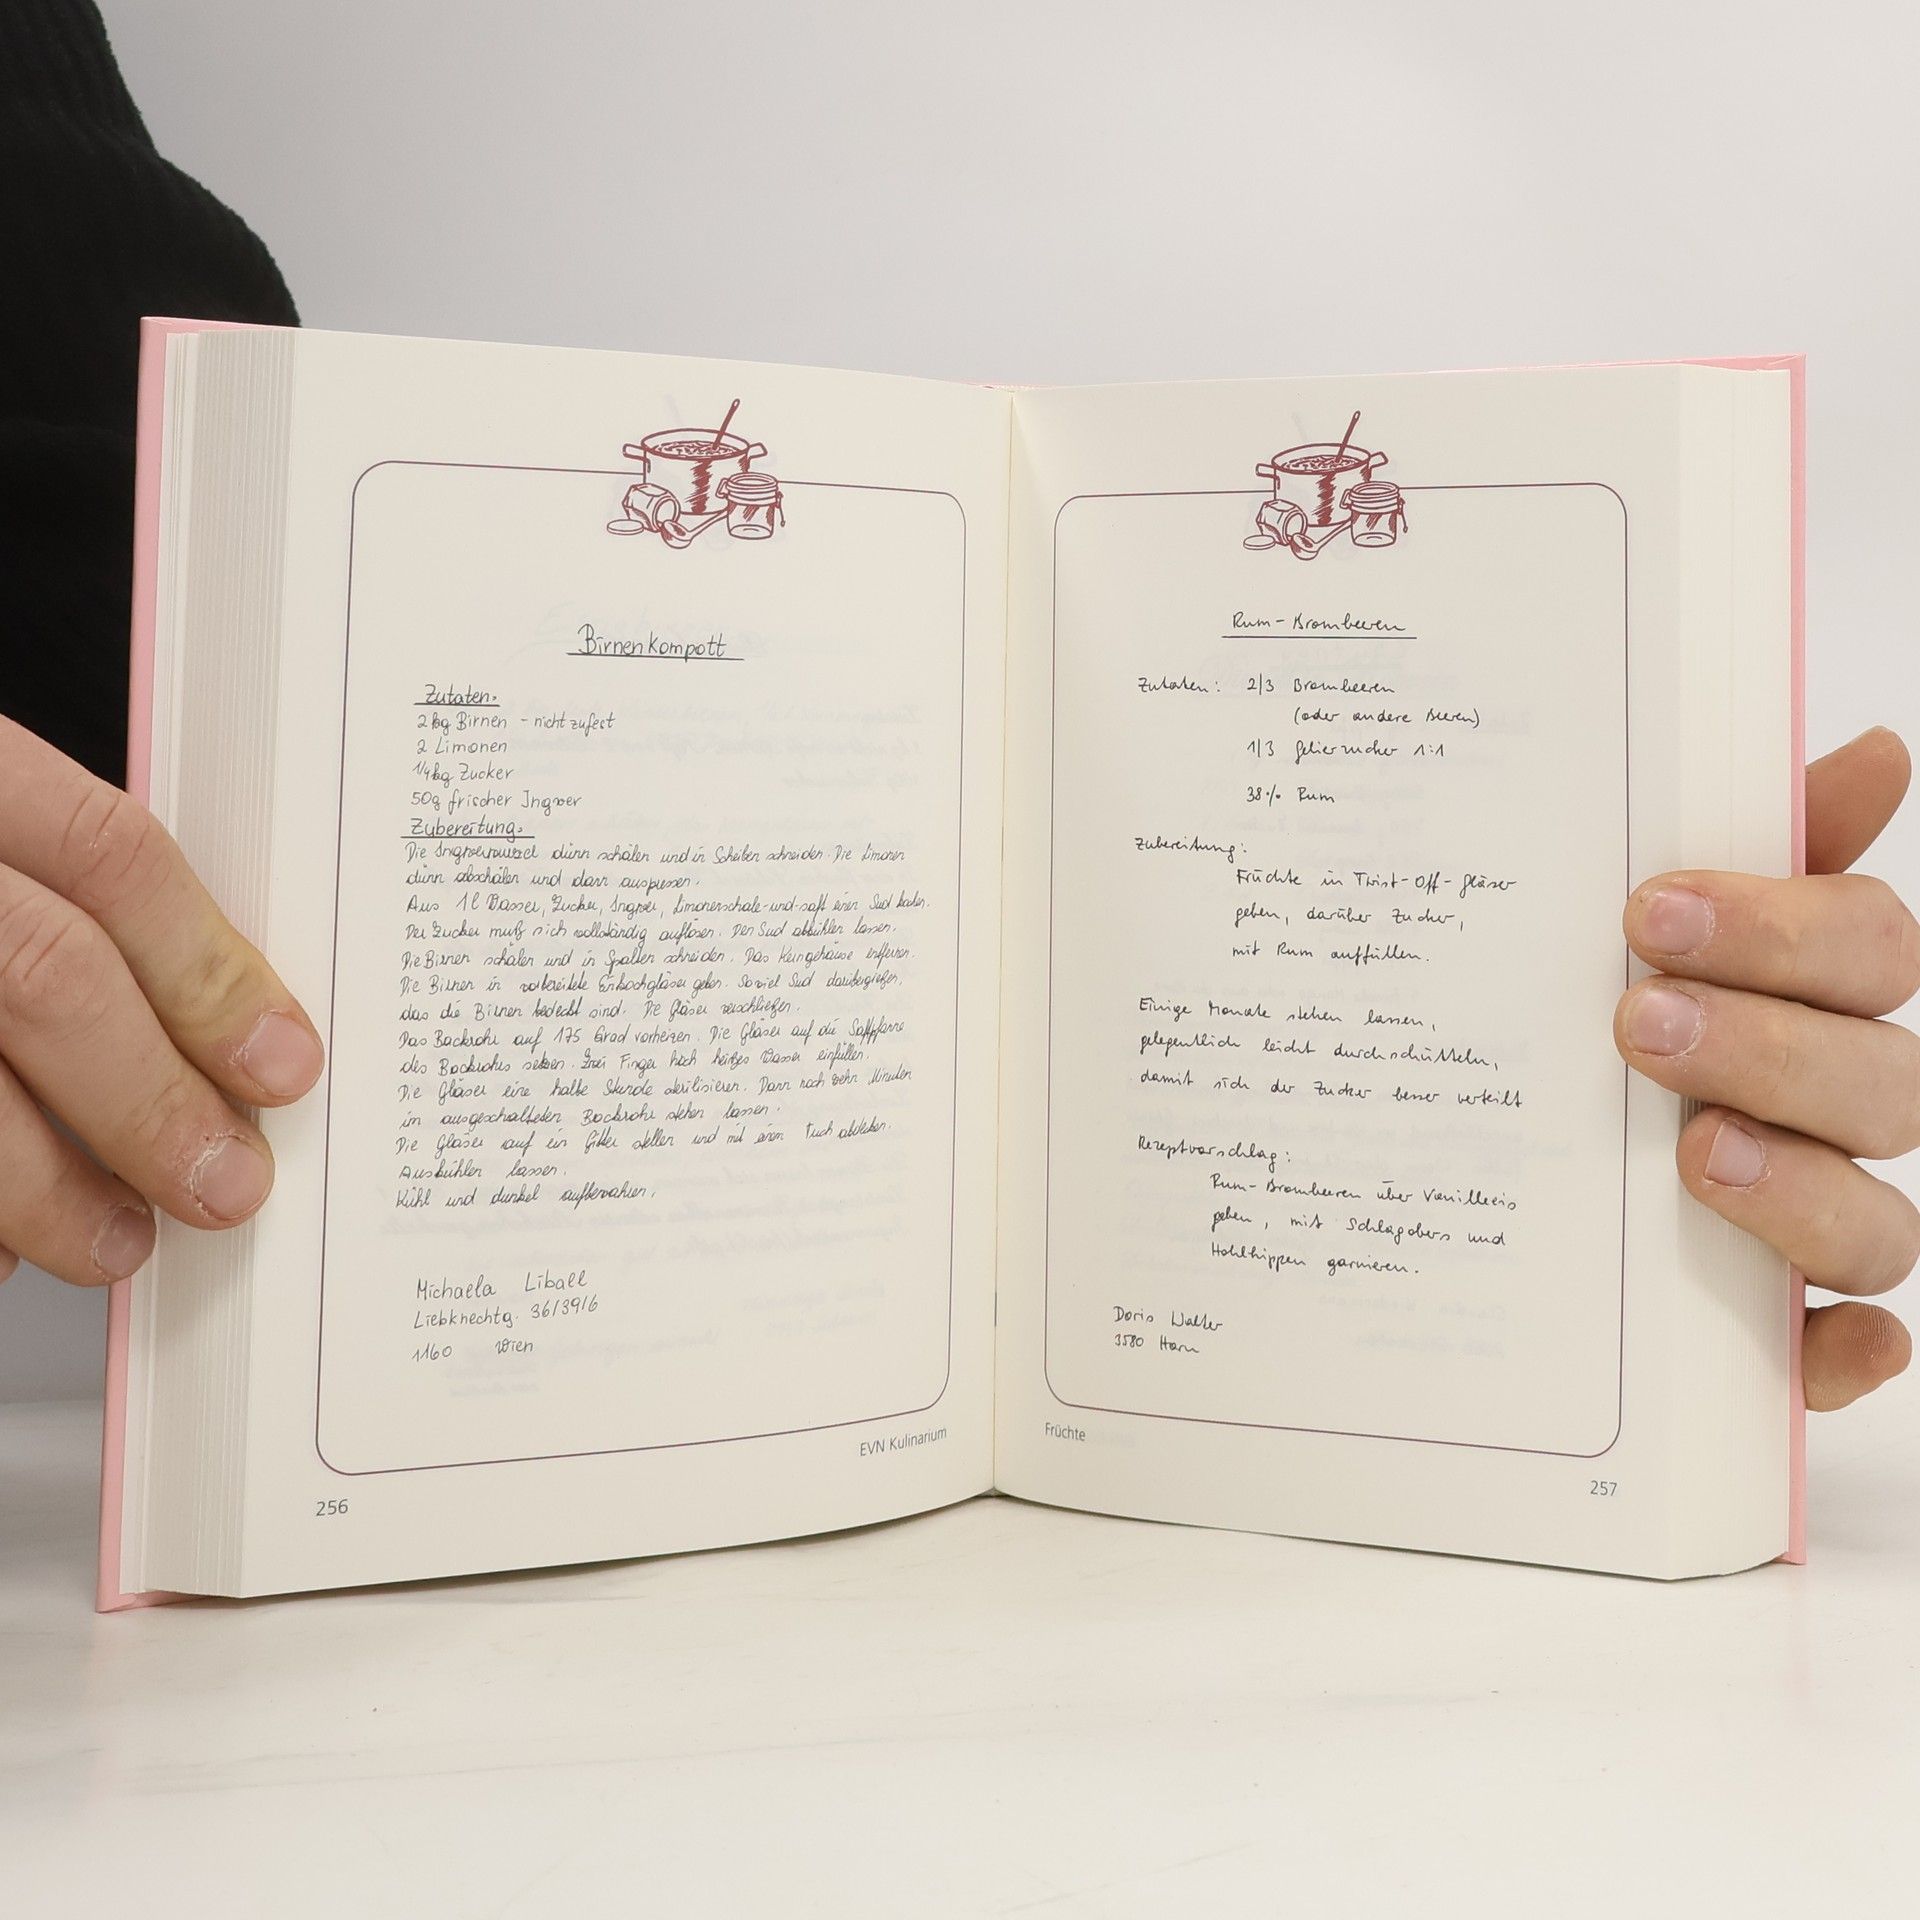 Birnenkompott
Zutaten:
2 kg Birnen - nicht zu fest
2 Limonen
1/4 kg Zucker
50g frischer Ingwer
Zubereitung:
Die Ingwerwurzel dünn schälen und in Scheiben schneiden. Die Limonen
dünn abschälen und dann auspressen.
Aus 1 l Wasser, Zucker, Ingwer, Limonenschale-und-saft einen Sud kochen.
Der Zucker muß sich vollständig auflösen. Den Sud abkühlen lassen.
Die Birnen schälen und in Spalten schneiden. Das Kerngehäuse entfernen.
Die Birnen in vorbereitete Einkochgläser geben. Soviel Sud darübergießen,
das die Birnen bedeckt sind. Die Gläser verschließen.
Das Backrohr auf 175 Grad vorheizen. Die Gläser auf die Saftpfanne
des Backrohrs setzen. Zwei Finger hoch heißes Wasser einfüllen.
Die Gläser eine halbe Stunde sterilisieren. Dann noch zehn Minuten
im ausgeschalteten Backrohr stehen lassen.
Die Gläser auf ein Gitter stellen und mit einem Tuch abdecken.
Auskühlen lassen.
Kühl und dunkel aufbewahren.
Michaela Liball
Liebknechtg. 36/39/6
1160 Wien
EVN Kulinarium
256
Rum-Brombeeren
Zutaten: 2/3 Brombeeren
(oder andere Beeren)
1/3 Gelierzucker 1:1
38% Rum
Zubereitung:
Früchte in Twist-Off-Gläser
geben, darüber Zucker,
mit Rum auffüllen.
Einige Monate stehen lassen,
gelegentlich leicht durchschütteln,
damit sich der Zucker besser verteilt
Rezeptvorschlag:
Rum-Brombeeren über Vanilleeis
geben, mit Schlagobers und
Hohlhippen garnieren.
Doris Walter
3580 Horn
Früchte
257